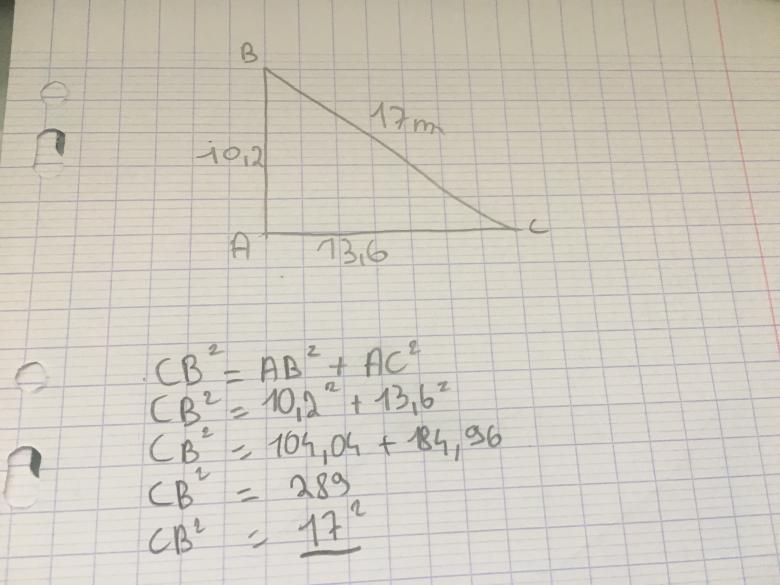 B
17m
10,2
A
C
13,6
CB² = AB² + AC²
CB² = 10,2² + 13,6²
CB² = 104,04 + 184,96
CB² = 289
CB² = 17²